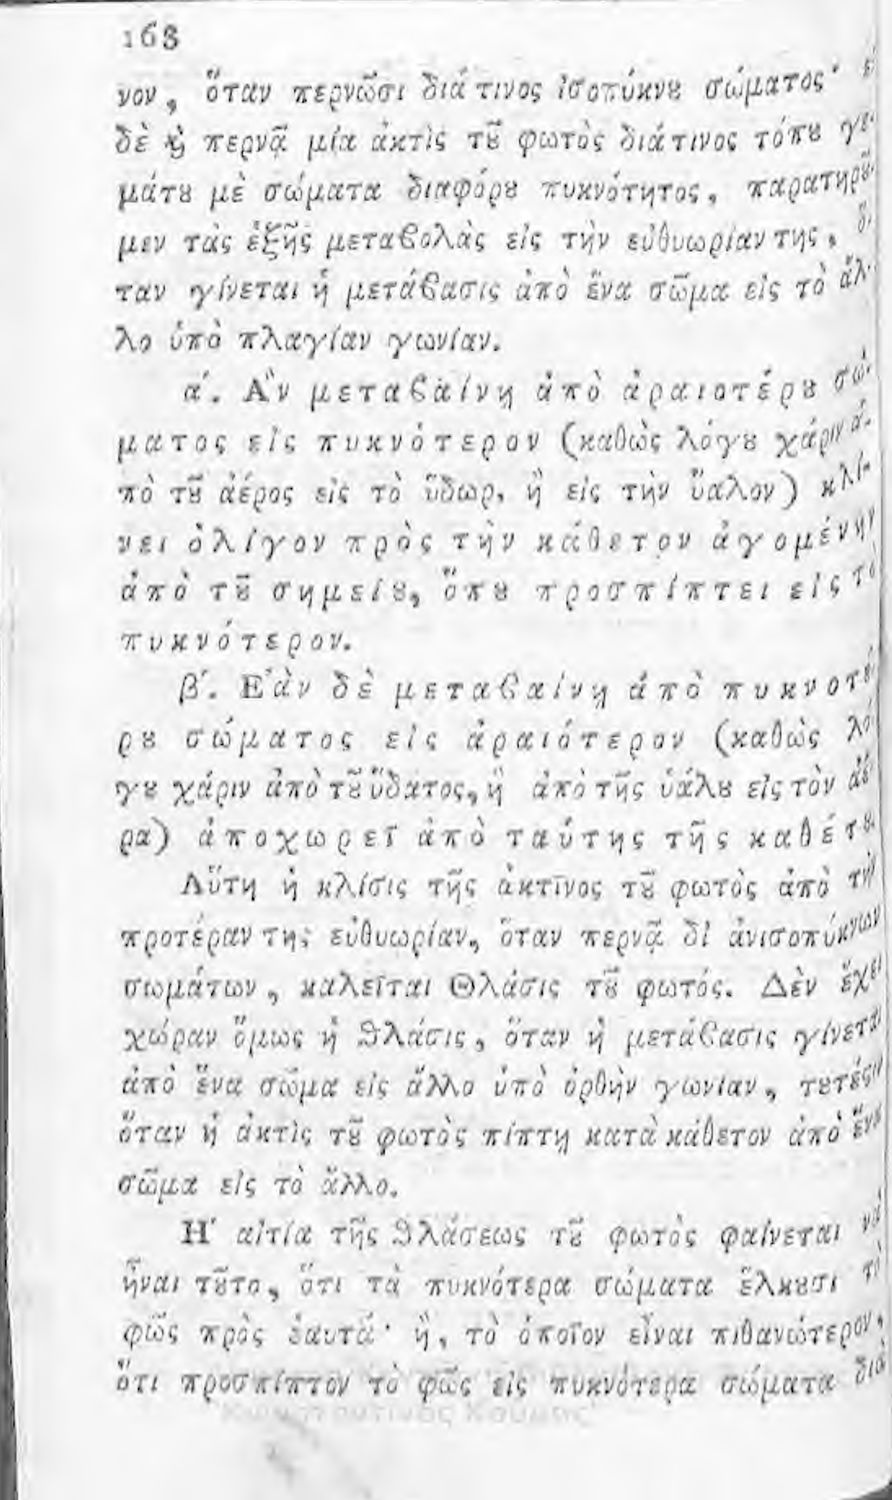 168
νον, ὅταν περνῶσι διά τινος ἰσοπύκνȣ σώματος· εἰ
δὲ ϗ̀ περνᾷ μία ἀκτὶς τȣ͂ φωτὸς διά τινος τόπȣ γε-
μάτȣ μὲ σώματα διαφόρȣ πυκνότητος, παρατηρȣ͂-
μεν τὰς ἑξῆς μεταϐολὰς εἰς τὴν εὐθυωρίαν της, ὅ-
ταν γίνεται ἡ μετάϐασις ἀπὸ ἕνα σῶμα εἰς τὸ ἄλ-
λο ὑπὸ πλαγίαν γωνίαν.
α΄. Α῎ν μεταϐαίνῃ ἀπὸ ἀραιοτέρȣ σώ-
ματος εἰς πυκνότερον (καθὼς λόγȣ χάριν ἀ-
πὸ τȣ͂ ἀέρος εἰς τὸ ὕδωρ, ἢ εἰς τὴν ὕαλον) κλί-
νει ὀλίγον πρὸς τὴν κάθετον ἀγομένην
ἀπὸ τȣ͂ σημείȣ, ὅπȣ προσπίπτει εἰς τὸ
πυκνότερον.
β΄. Ε᾿ὰν δὲ μεταϐαίνῃ ἀπὸ πυκνοτέ-
ρȣ σώματος εἰς ἀραιότερον (καθὼς λό-
γȣ χάριν ἀπὸ τȣ͂ ὕδατος, ἢ ἀπὸ τῆς ὑάλȣ εἰς τὸν ἀέ-
ρα) ἀποχωρεῖ ἀπὸ ταύτης τῆς καθέτȣ.
Αὕτη ἡ κλίσις τῆς ἀκτῖνος τȣ͂ φωτὸς ἀπὸ τὴν
προτέραν της εὐθυωρίαν, ὅταν περνᾷ δι᾿ ἀνισοπύκνων
σωμάτων, καλεῖται Θλάσις τȣ͂ φωτός. Δὲν ἔχει
χώραν ὅμως ἡ ϑλάσις, ὅταν ἡ μετάϐασις γίνεται
ἀπὸ ἕνα σῶμα εἰς ἄλλο ὑπὸ ὀρθὴν γωνίαν, τȣτέςιν
ὅταν ἡ ἀκτὶς τȣ͂ φωτὸς πίπτῃ κατὰ κάθετον ἀπὸ ἕνα
σῶμα εἰς τὸ ἄλλο.
Η῾ αἰτία τῆς ϑλάσεως τȣ͂ φωτὸς φαίνεται νὰ
ἦναι τȣ͂το, ὅτι τὰ πυκνότερα σώματα ἕλκȣσι τὸ
φῶς πρὸς ἑαυτά· ἢ, τὸ ὁποῖον εἶναι πιθανώτερον,
ὅτι προσπίπτον τὸ φῶς εἰς πυκνότερα σώματα διὰ